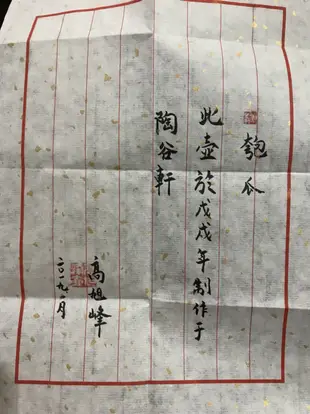 匏瓜
此壶於戊戌年制作于
陶谷軒
高旭峰
二〇一九.一月